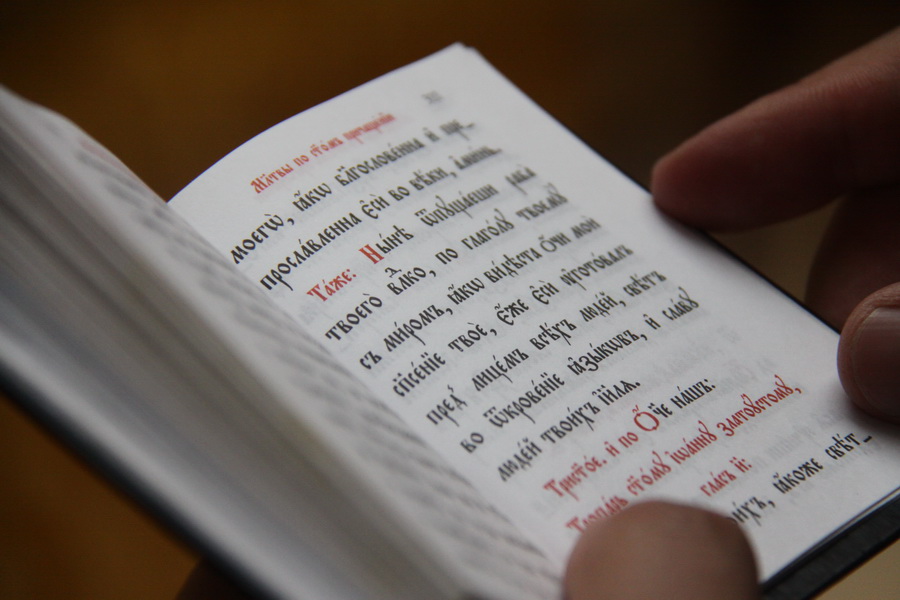 Мл҃твы по ст҃о́мъ причаще́нїи
моегѡ̀, ꙗ҆́кѡ бл҃гослове́нна и҆ пре_
просла́вленна є҆сѝ во вѣ́ки, а҆ми́нь.
Та́же: Ны́нѣ ѿпꙋща́еши раба̀
твоего̀ вл҃ко, по глаго́лꙋ твоемꙋ̀
съ ми́ромъ, ꙗ҆́кѡ ви́дѣста ѻ҆́чи моѝ
сп҃се́нїе твоѐ, є҆́же є҆сѝ ᲂу҆гото́валъ
пред̾ лице́мъ всѣ́хъ люде́й, свѣ́тъ
во ѿкрове́нїе ꙗ҆зы́кѡвъ, и҆ сла́вꙋ
люде́й твои́хъ і҆и҃лѧ.
Трист҃о́е. и҆ по Ѻ҆́ч҃е на́шъ:
Тропа́рь ст҃о́мꙋ і҆ѡа́ннꙋ златоꙋ́стомꙋ,
гла́съ и҃:
ꙗ҆́коже свѣ́т_